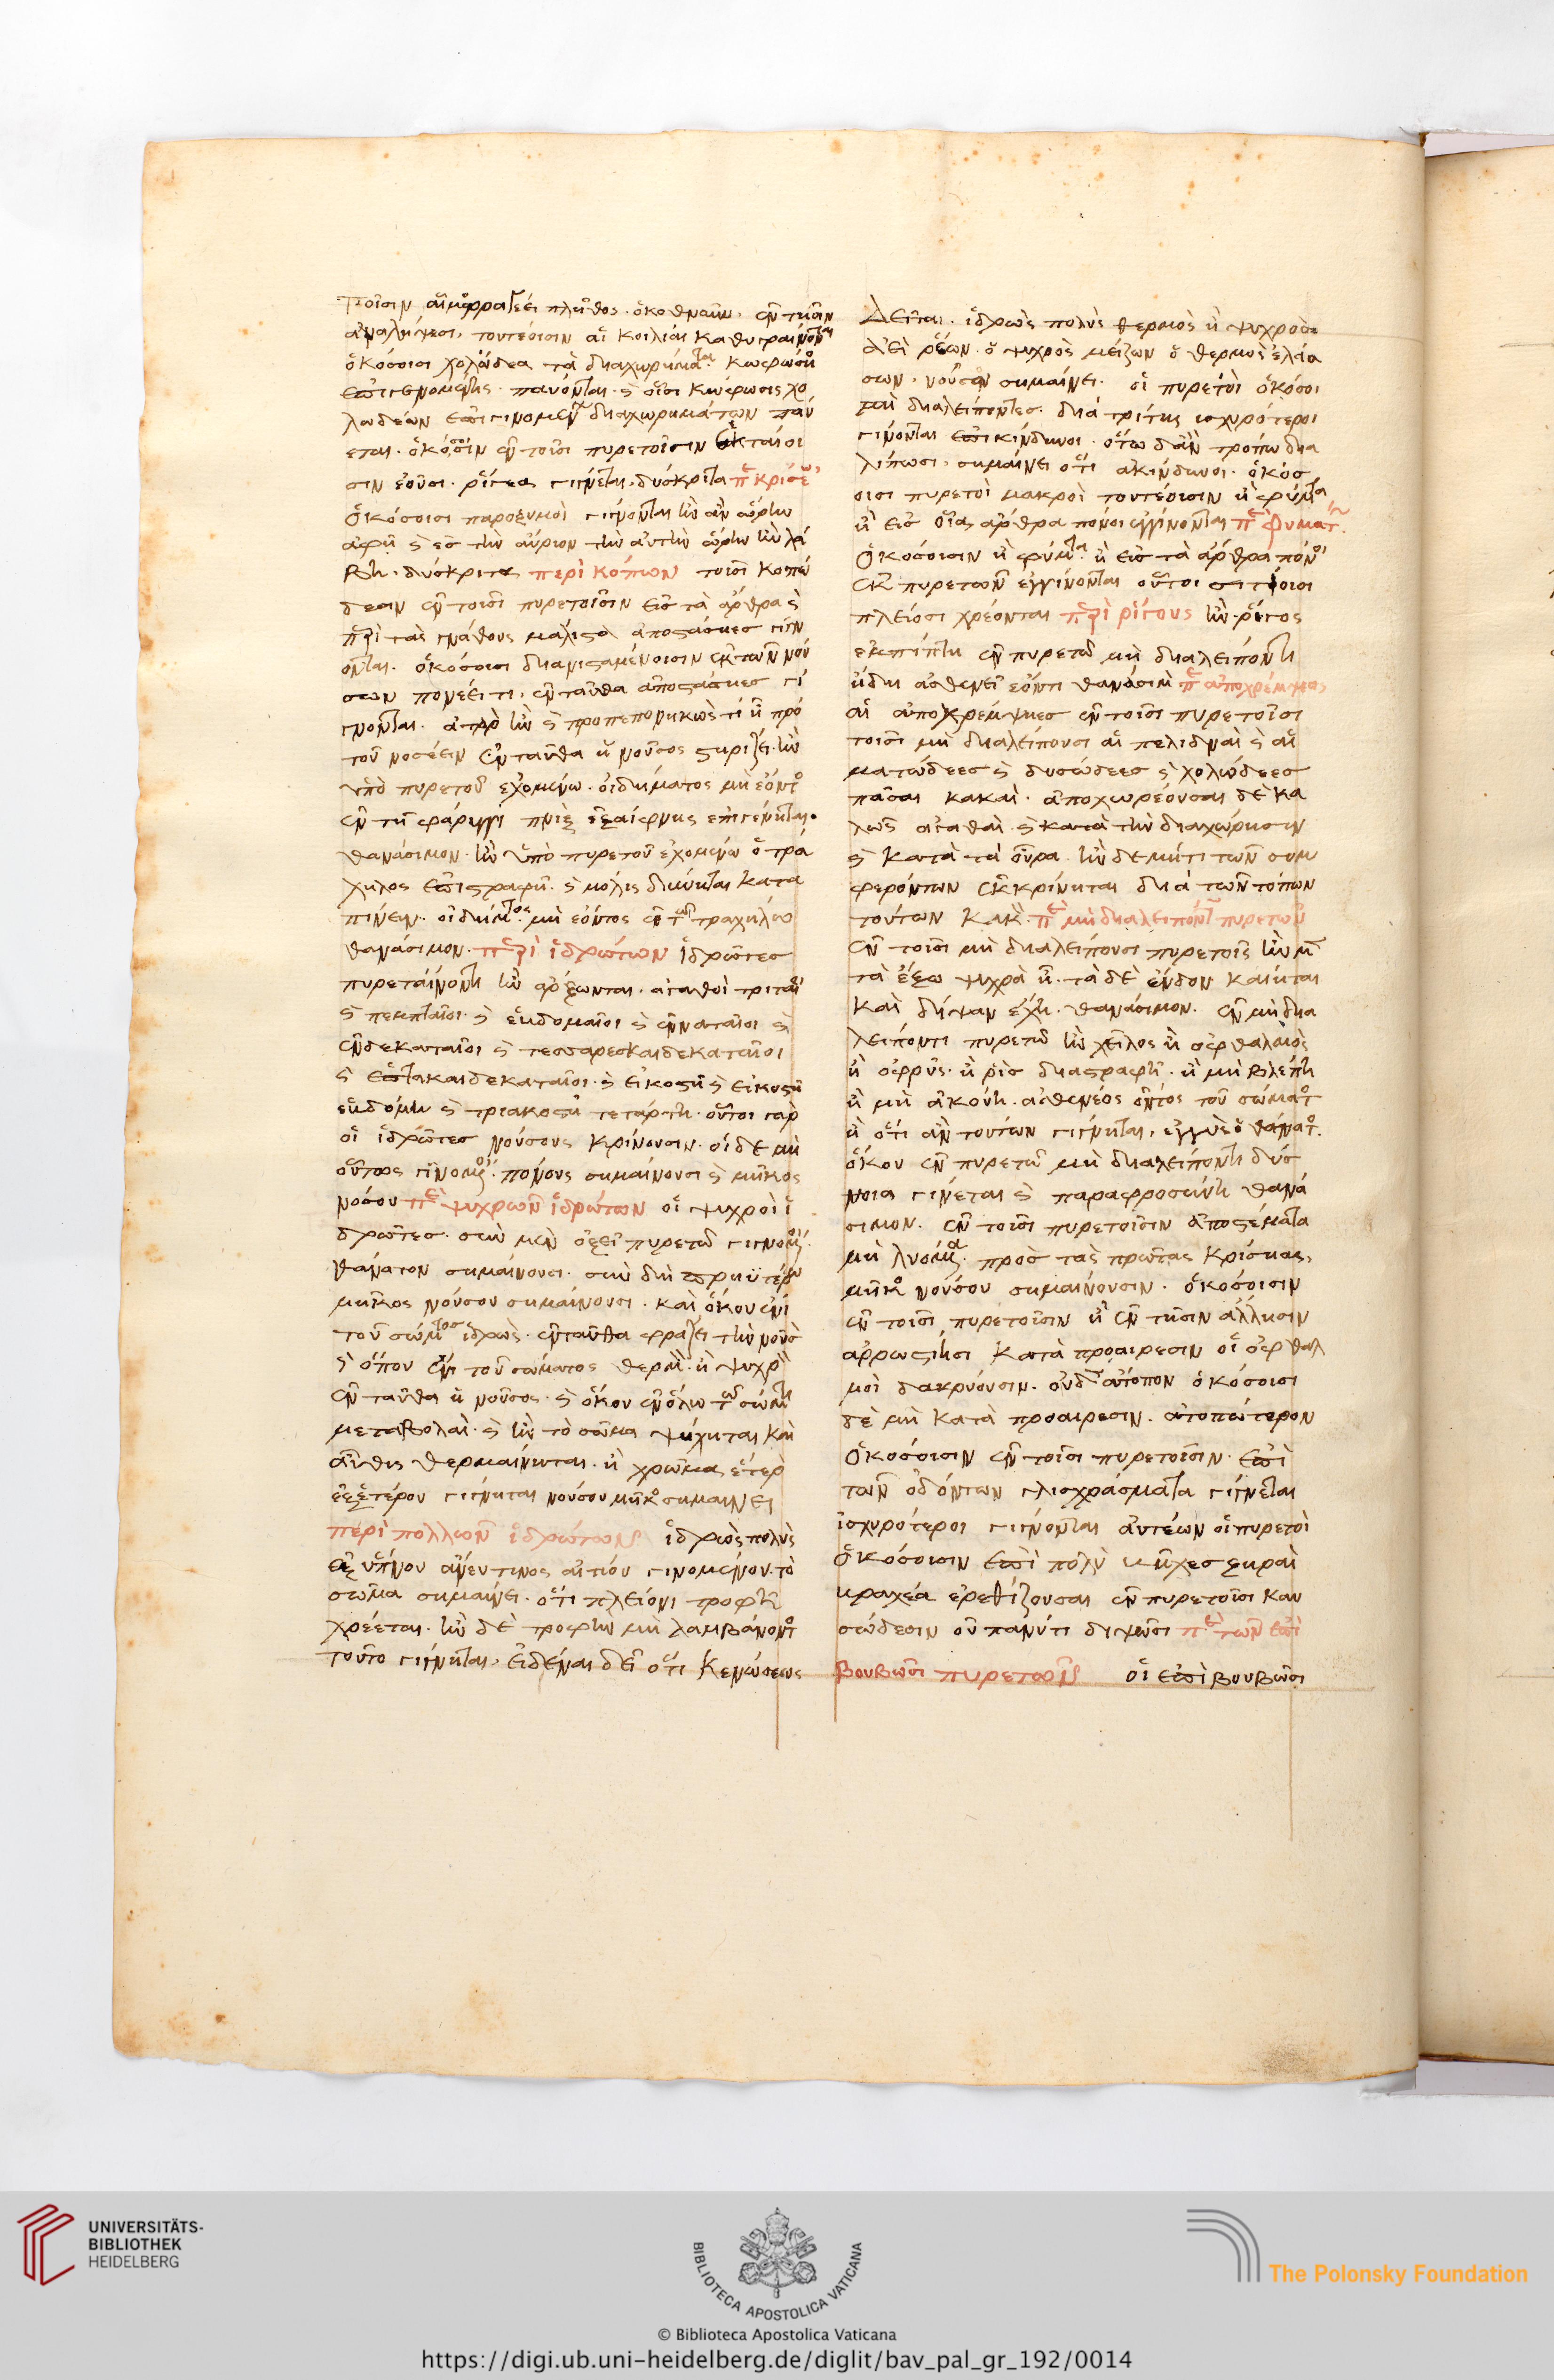 τοῖσιν αἱμορραγέει πλῆθος ὁκοθενοῦν· ἐν τῆσιν
ἀναλήψεσι, τουτέοισιν αἱ κοιλίαι καθυγραίνονται
ὁκόσοισι χολώδεα τὰ διαχωρήματα· κωφώσιος
ἐπιγενομένης· παύονται· καὶ οἷσι κώφωσις χο
λωδέων ἐπιγινομένων διαχωρημάτων παύ
εται· ὁκόσοισιν ἐν τοῖσι πυρετοῖσιν ἑκταίοι
σιν ἐοῦσι ῥίγεα γίγνεται· δύσκριτα περὶ κρίσεως
ὁκόσοισι παροξυσμοὶ γίγνονται ἢν ἂν ὥρην
ἀφῆ καὶ ἐς τὴν αὔριον τὴν αὐτὴν ὥρην ἢν λά
βη· δύσκριτα περὶ κόπων τοῖσι κοπιώ
δεσιν ἐν τοῖσι πυρετοῖσιν εἰς τὰ ἄρθρα καὶ
περὶ τὰς γνάθους μάλιστα ἀποστάσιες γίγν
ονται· ὁκόσοισι διανισταμένοισιν ἐκ τῶν νού
σων πονέει τι, ἐνταῦθα ἀποστάσιες γί
γνονται· ἀτὰρ ἢν καὶ προπεπονηκώς τι ἦ πρὸ
τοῦ νοσέειν ἐνταῦθα ἡ νοῦσος στηρίζει· ἢν
ὑπὸ πυρετοῦ ἐχομένω· οἰδήματος μὴ ἐόντος
ἐν τῆ φάρυγγι πνὶξ ἐξαίφνης ἐπιγένηται·
θανάσιμον· ἢν ὑπὸ πυρετοῦ ἐχομένω ὁ τρά
χηλος ἐπιστραφῆ· καὶ μόλις δύνηται κατα
πίνειν· οἰδήματος μὴ ἐόντος ἐν τῶ τραχήλω
θανάσιμον· περὶ ἱδρώτων ἱδρῶτες
πυρεταίνοντι ἢν ἄρξωνται· ἀγαθοὶ τριταῖοι
καὶ πεμπταῖοι· καὶ ἑβδομαῖοι καὶ ἐνναταῖοι καὶ
ἑνδεκαταῖοι καὶ τεσσαρεσκαιδεκαταῖοι
καὶ ἑπτακαιδεκαταῖοι· καὶ εἰκοστῆ καὶ εἰκοστῆ
ἑβδόμη καὶ τριακοστῆ τετάρτη· οὗτοι γὰρ
οἱ ἱδρῶτες νούσους κρίνουσιν· οἱ δὲ μὴ
οὕτως γινόμενοι· πόνους σημαίνουσι καὶ μῆκος
νόσου περὶ ψυχρῶν ἱδρώτων οἱ ψυχροὶ ἱ
δρῶτες· σὺν μὲν ὀξεῖ πυρετῶ γιγνόμενοι·
θάνατον σημαίνουσι· σὺν δὴ πρηϋτέρω
μῆκος νούσου σημαίνουσι· καὶ ὅκου ἔνι
τοῦ σώματος ἱδρώς· ἐνταῦθα φράζει τὴν νοῦσον
καὶ ὅπου ἔνι τοῦ σώματος θερμὸν ἢ ψυχρὸν
ἐνταῦθα ἡ νοῦσος· καὶ ὅκου ἐν ὅλω τῶ σώματι
μεταβολαί· καὶ ἢν τὸ σῶμα ψύχηται καὶ
αὖθις θερμαίνηται· ἢ χρῶμα ἕτερον
ἐξ ἑτέρου γίγνηται νούσου μῆκος σημαίνει
περὶ πολλῶν ἱδρώτων ἱδρὼς πολὺς
ἐξ ὕπνου ἄνευ τινος αἰτίου γινομένου· τὸ
σῶμα σημαίνει· ὅτι πλείονι τροφῆ
χρέεται· ἢν δὲ τροφὴν μὴ λαμβάνοντι
τοῦτο γίγνηται· εἰδέναι δεῖ ὅτι κενώσεως
δεῖται· ἱδρὼς πολὺς θερμὸς ἢ ψυχρὸς
ἀεὶ ῥέων· ὁ ψυχρὸς μείζων ὁ θερμὸς ἐλάσ
σων· νοῦσον σημαίνει· οἱ πυρετοὶ ὁκόσοι
μὴ διαλείποντες· διὰ τρίτης ἰσχυρότεροι
γίνονται ἐπικίνδυνοι· ὅτω δ' ἂν τρόπω δια
λίπωσι· σημαίνει ὅτι ἀκίνδυνοι· ὁκόσ
οισι πυρετοὶ μακροὶ τουτέοισιν ἢ φύματα
ἢ εἰς τὰ ἄρθρα πόνοι ἐγγίνονται περὶ φυμάτων
ὁκόσοισιν ἢ φύματα ἢ εἰς τὰ ἄρθρα πόνοι
ἐκ πυρετῶν ἐγγίνονται οὗτοι σιτίοισι
πλείοσι χρέονται περὶ ῥίγους ἢν ῥῖγος
ἐμπίπτη ἐν πυρετῶ μὴ διαλείποντι
ἤδη ἀσθενεῖ ἐόντι θανάσιμον περὶ ἀποχρέμψιος
αἱ ἀποχρέμψιες ἐν τοῖσι πυρετοῖσι
τοῖσι μὴ διαλείπουσι αἱ πελιδναὶ καὶ αἱ
ματώδεες καὶ δυσώδεες καὶ χολώδεες
πᾶσαι κακαί· ἀποχωρέουσαι δὲ κα
λῶς ἀγαθαί· καὶ κατὰ τὴν διαχώρησιν
καὶ κατὰ τὰ οὖρα· ἢν δὲ μή τι τῶν συμ
φερόντων ἐκκρίνηται διὰ τῶν τόπων
τούτων κακόν· περὶ μὴ διαλειπόντων πυρετῶν
ἐν τοῖσι μὴ διαλείπουσι πυρετοῖς ἢν μὲν
τὰ ἔξω ψυχρὰ ἦ· τὰ δὲ ἔνδον καίηται
καὶ δίψαν ἔχη· θανάσιμον· ἐν μὴ δια
λείποντι πυρετῶ ἢν χεῖλος ἢ ὀφθαλμὸς
ἢ ὀφρύς· ἢ ῥὶς διαστραφῆ· ἢ μὴ βλέπη
ἢ μὴ ἀκούη· ἀσθενέος ὄντος τοῦ σώματος
ἢ ὅτι ἂν τουτέων γίγνηται· ἐγγὺς ὁ θάνατος
ὅκου ἐν πυρετῶ μὴ διαλείποντι δύσ
πνοια γίνεται καὶ παραφροσύνη θανά
σιμον· ἐν τοῖσι πυρετοῖσιν ἀποστέματα
μὴ λυόμενα πρὸς τὰς πρώτας κρίσιας,
μῆκος νούσου σημαίνουσιν· ὁκόσοισιν
ἐν τοῖσι πυρετοῖσιν ἢ ἐν τῆσιν ἄλλησιν
ἀρρωστίησι κατὰ προαίρεσιν οἱ ὀφθαλ
μοὶ δακρύουσιν· οὐδὲν ἄτοπον ὁκόσοισι
δὲ μὴ κατὰ προαίρεσιν· ἀτοπώτερον
ὁκόσοισιν ἐν τοῖσι πυρετοῖσιν· ἐπὶ
τῶν ὀδόντων γλισχράσματα γίγνεται
ἰσχυρότεροι γίγνονται αὐτέων οἱ πυρετοί
ὁκόσοισιν ἐπὶ πολὺ βῆχες ξηραὶ
βραχέα ἐρεθίζουσαι ἐν πυρετοῖσι καυ
σώδεσιν οὐ πάνυ τι διψῶσι περὶ τῶν ἐπὶ
βουβῶσι πυρετῶν οἱ ἐπὶ βουβῶσι
UNIVERSITÄTS-
BIBLIOTHEK
HEIDELBERG
BIBLIOTECA APOSTOLICA VATICANA
The Polonsky Foundation
© Biblioteca Apostolica Vaticana
https://digi.ub.uni-heidelberg.de/diglit/bav_pal_gr_192/0014